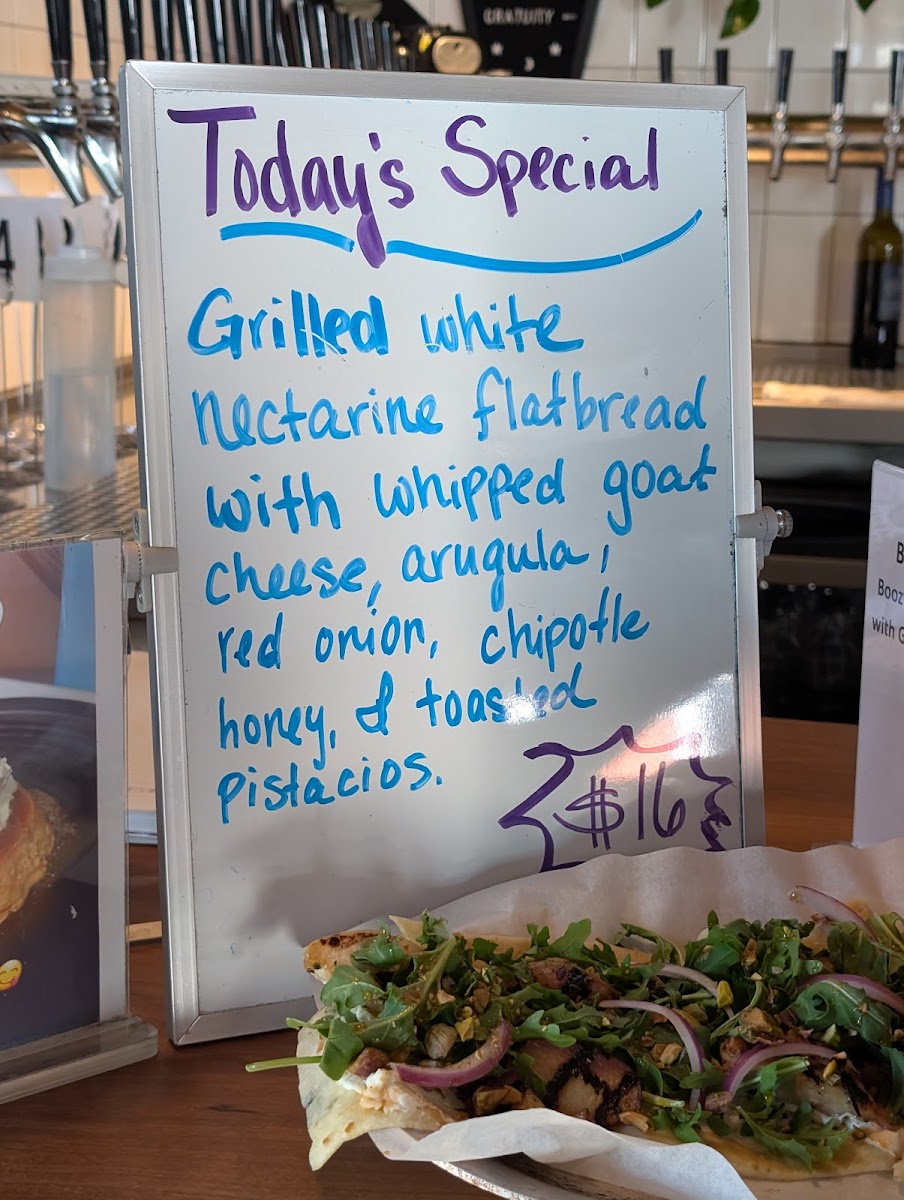 GRATUITY
Today's Special
Grilled white
nectarine flatbread
with whipped goat
cheese, arugula,
red onion, chipotle
honey, & toasted
pistacios.
$16
B
Booz
with G